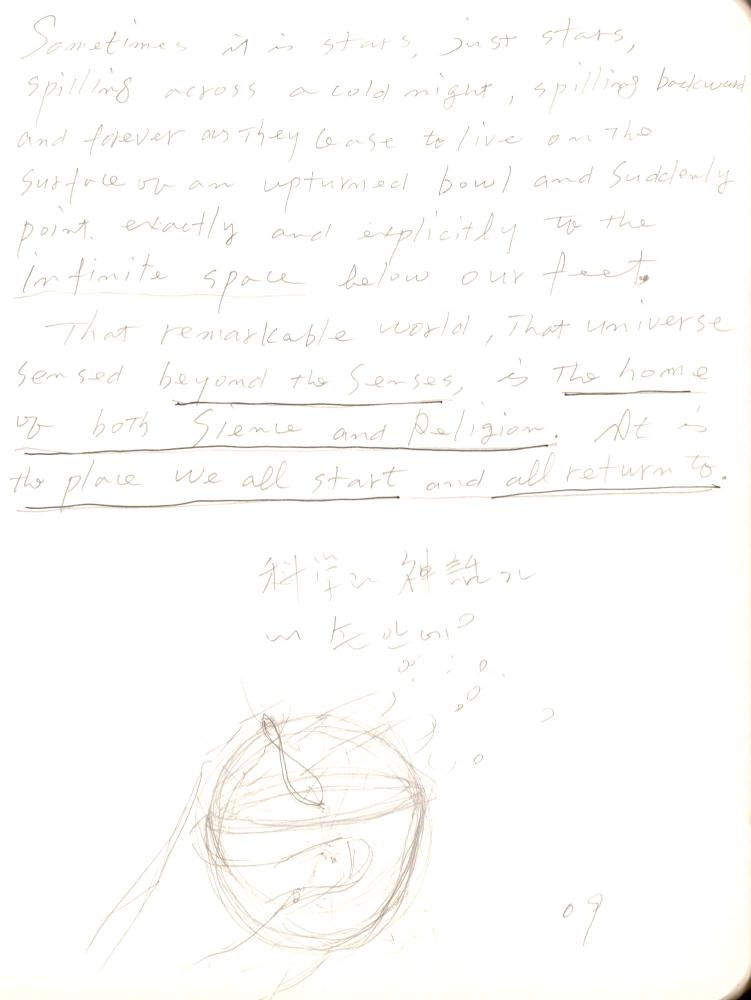 Sometimes it is stars, just stars,
spilling across a cold night, spilling backward
and forever as They cease to live on The
surface of an upturned bowl and suddenly
point exactly and explicitly to the
infinite space below our feet.
That remarkable world, That universe
sensed beyond the senses, is The home
of both Sience and Religion. It is
the place we all start and all return to.
科学과 神話가
09